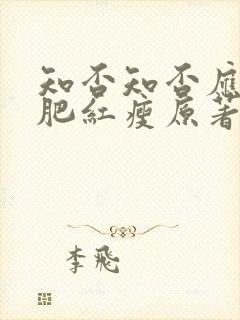 知否知否應
肥紅瘦原著
李飛